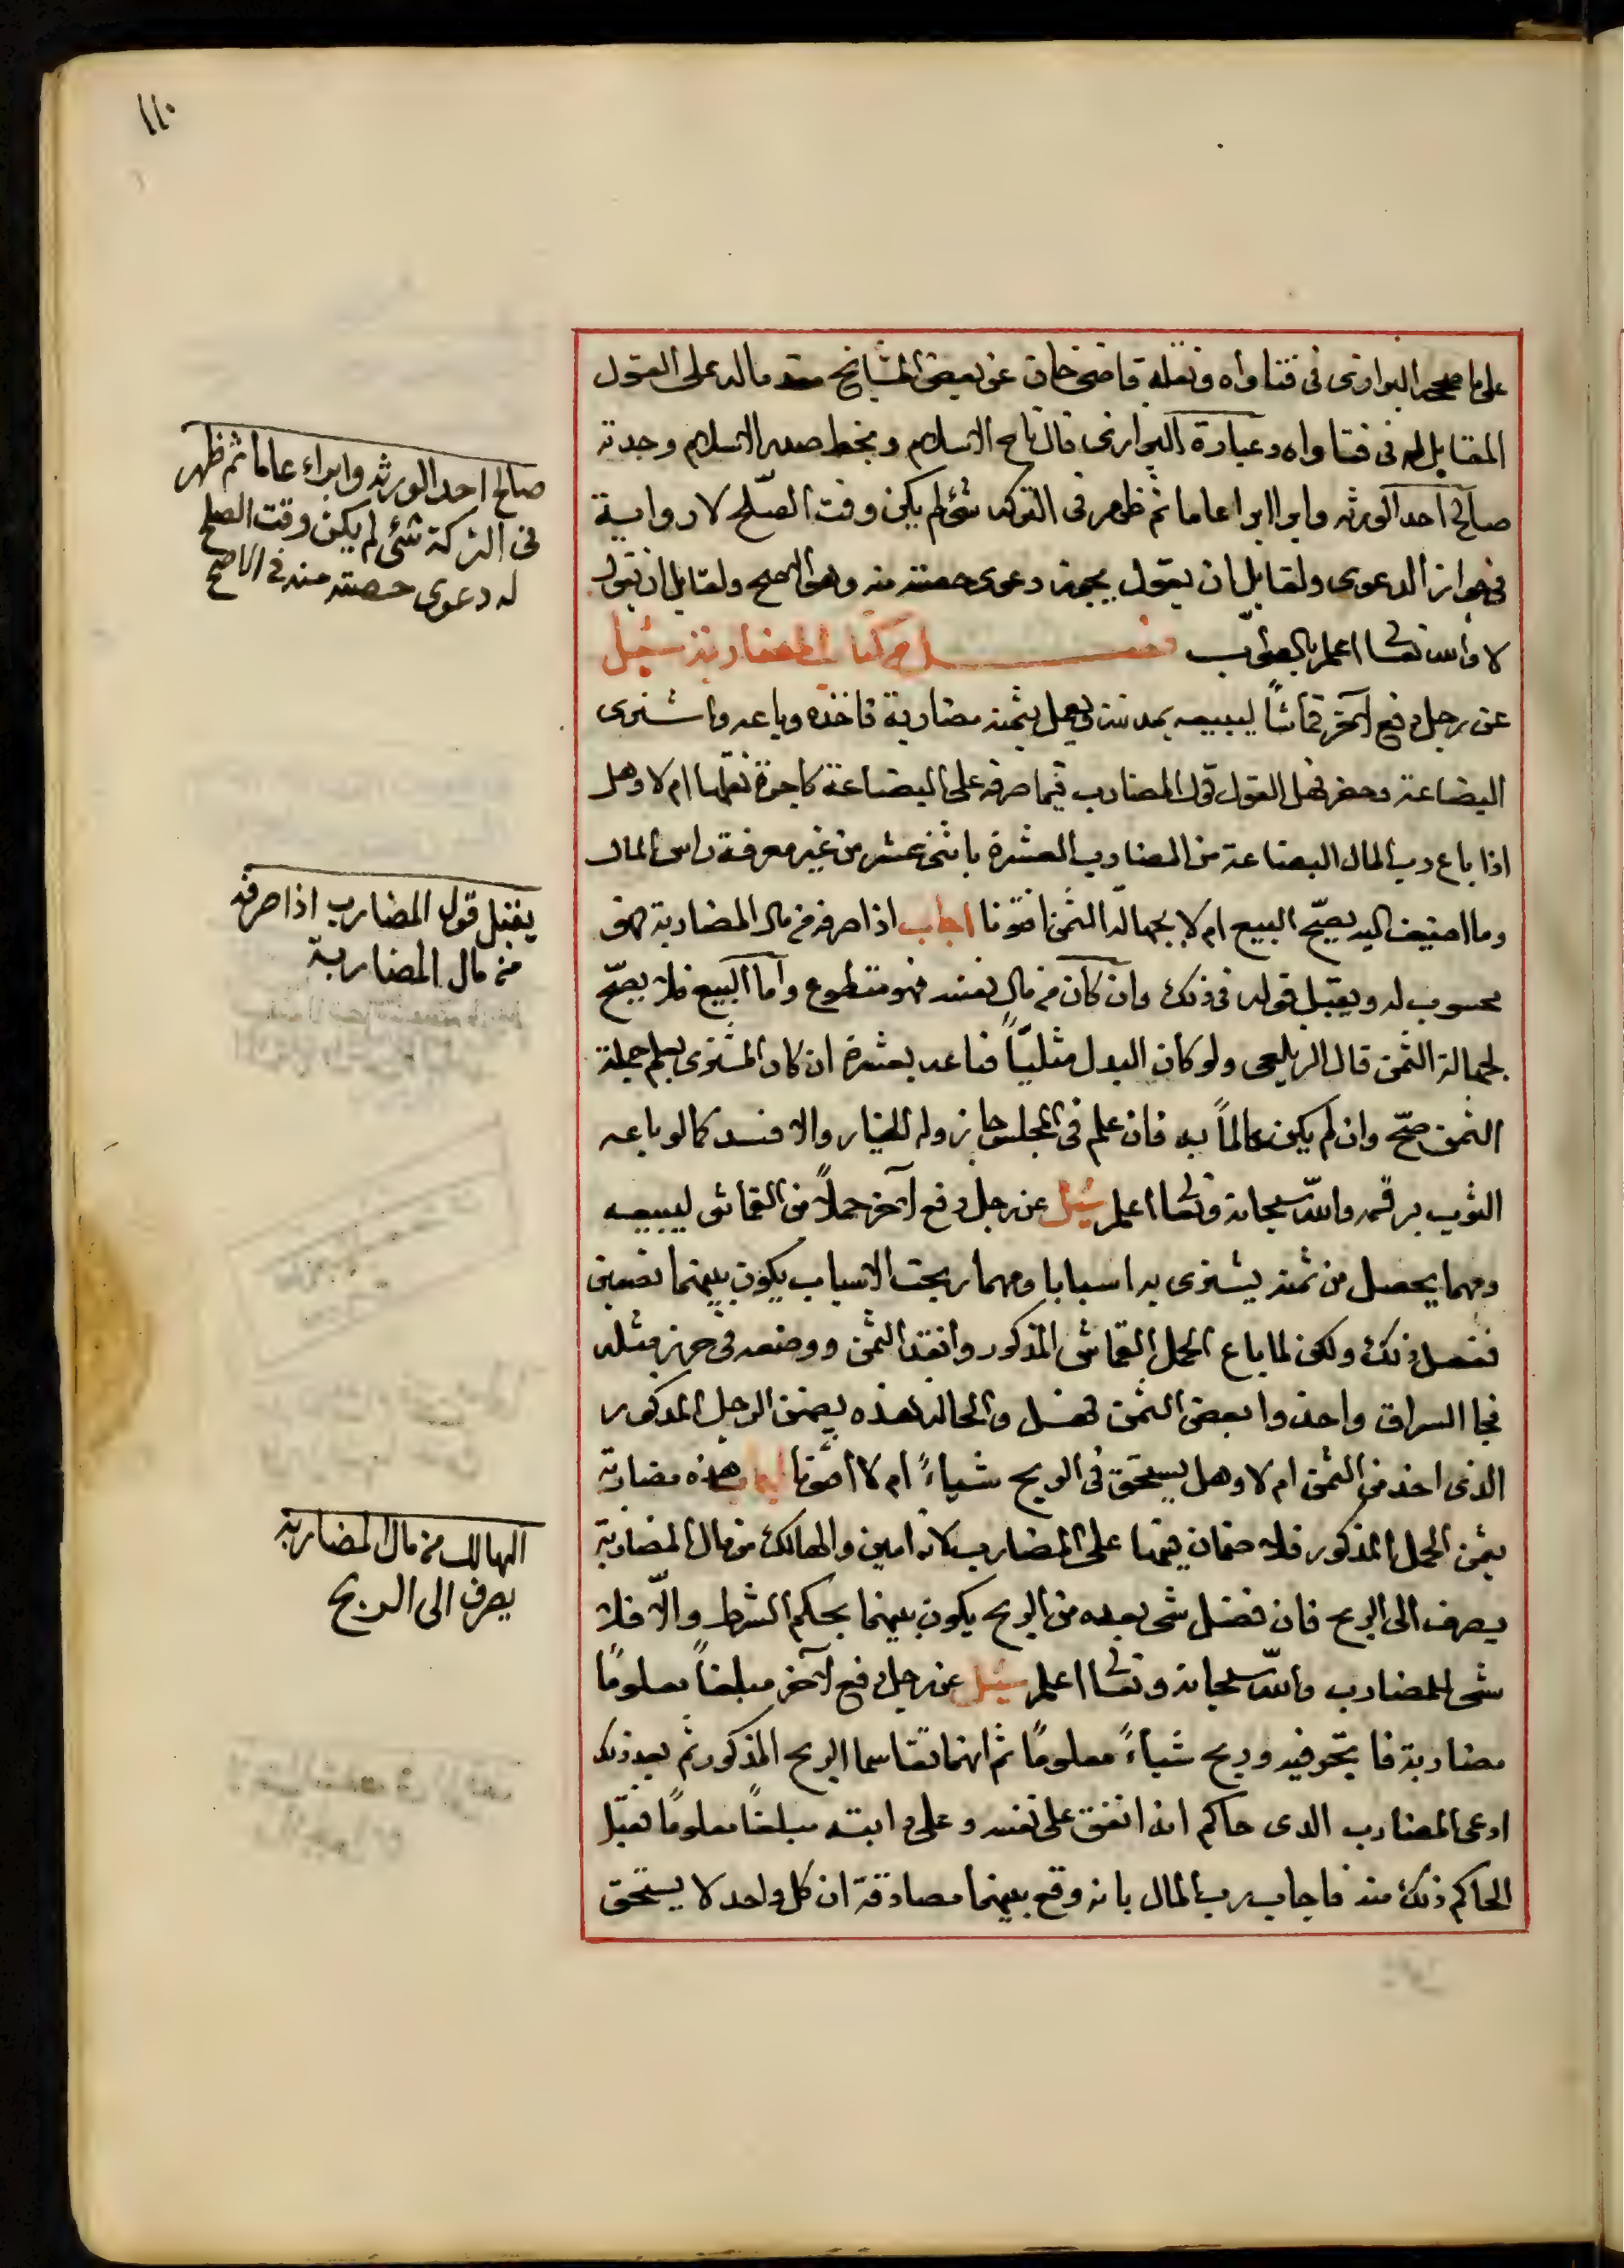 ١١٠
على ما صححه البزازى فى فتاواه ونقله قاضى خان عن بعض المشايخ مقدما له على القول
المقابل له فى فتاواه وعبارة البزازى قال تاج الاسلام وبخط صدر الاسلام وجدته
صالح احد الورثة وابرا ابرا عاما ثم ظهر فى التركة شئ لم يكن وقت الصلح لا رواية
فى جواز الدعوى ولقايل ان يقول يجوز دعوى حصته منه وهو الاصح ولقايل ان يقول
لا والله تعالى اعلم بالصواب فصل من كتاب المضاربة سئل
عن رجل دفع لآخر قماشاً ليبيعه بمدينة ويعمل بثمنه مضاربة فاخذه وباعه واشترى
البضاعة وحضر فهل القول قول المضارب فيما صرفه على البضاعة كاجرة نقلها ام لا وهل
اذا باع رب المال البضاعة من المضارب العشرة باثنى عشر من غير معرفة راس المال
وما اضيف اليه يصحّ البيع ام لا بجهالة الثمن افتونا اجاب اذا صرفه من مال المضاربة فهو
محسوب له ويقبل قوله فى ذلك وان كان من مال نفسه فهو متطوع واما البيع فلا يصحّ
لجهالة الثمن قال الزيلعى ولو كان البدل مثليّاً فباعه بعشرة ان كان المشترى يعلم جملة
الثمن صحّ وان لم يكن عالماً به فان علم فى المجلس جاز وله الخيار والا فسد كما لو باعه
الثوب برقمه والله سبحانه وتعالى اعلم سئل عن رجل دفع لآخر حملاً من القماش ليبيعه
ومهما يحصل من ثمنه يشترى به اسبابا ومهما ربحت الاسباب يكون بينهما نصفين
ففعل ذلك ولكن لما باع الحمل القماش المذكور وانقد الثمن ووضعه فى حرز مثله
فجا السراق واخذوا بعض الثمن فهل والحالة هذه يضمن الرجل المذكور
الذى اخذ من الثمن ام لا وهل يستحق فى الربح شياءً ام لا افتونا اجاب هذه مضاربة
بثمن الحمل المذكور فلا ضمان فيها على المضارب لانه امين والهالك من مال المضاربة
يصرف الى الربح فان فضل شى بعده من الربح يكون بينهما بحكم الشرط والّا فلا
شى للمضارب والله سبحانه وتعالى اعلم سئل عن رجل دفع لآخر مبلغاً معلومًا
مضاربة فاتّجر فيه وربح شياءً معلومًا ثم انهما تقاسما الربح المذكور ثم بعد ذلك
ادعى المضارب لدى حاكم انه انفق على نفسه وعلى دابته مبلغاً معلومًا فقبل
الحاكم ذلك منه فاجاب رب المال بانه وقع بينهما مصادقة ان كل واحد لا يستحق
صالح احد الورثة وابراء عاما ثم ظهر
فى التركة شئ لم يكن وقت الصلح
له دعوى حصته منه فى الاصح
يقبل قول المضارب اذا صرفه
من مال المضاربة
الهالك من مال المضاربة
يصرف الى الربح